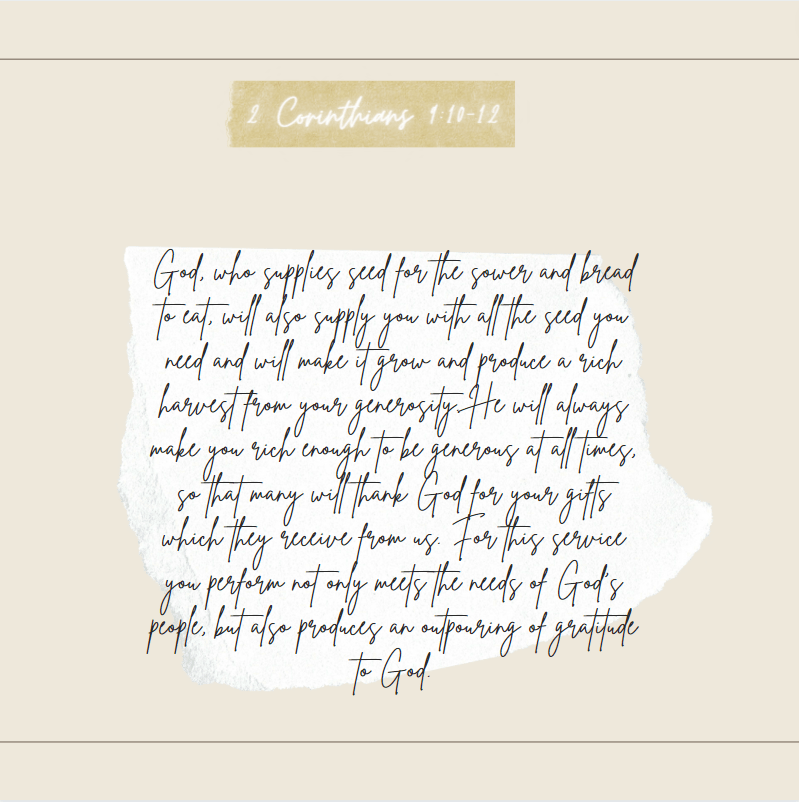 2 Corinthians 9:10-12
God, who supplies seed for the sower and bread
to eat, will also supply you with all the seed you
need and will make it grow and produce a rich
harvest from your generosity.He will always
make you rich enough to be generous at all times,
so that many will thank God for your gifts
which they receive from us. For this service
you perform not only meets the needs of God's
people, but also produces an outpouring of gratitude
to God.